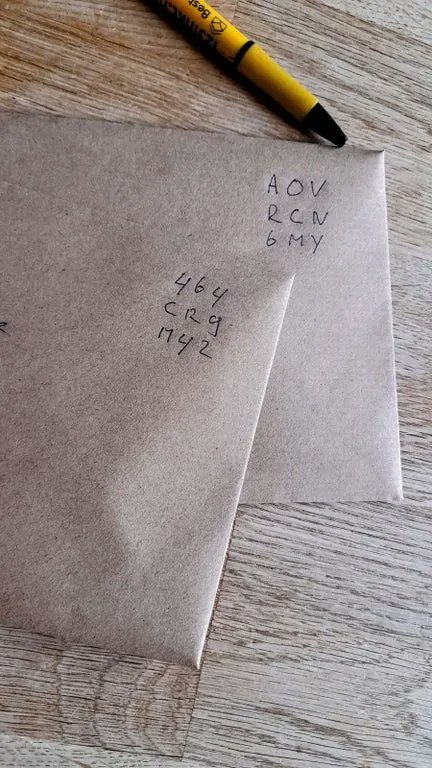 Best
AOV
RCN
6MY
464
CR9
M42
R